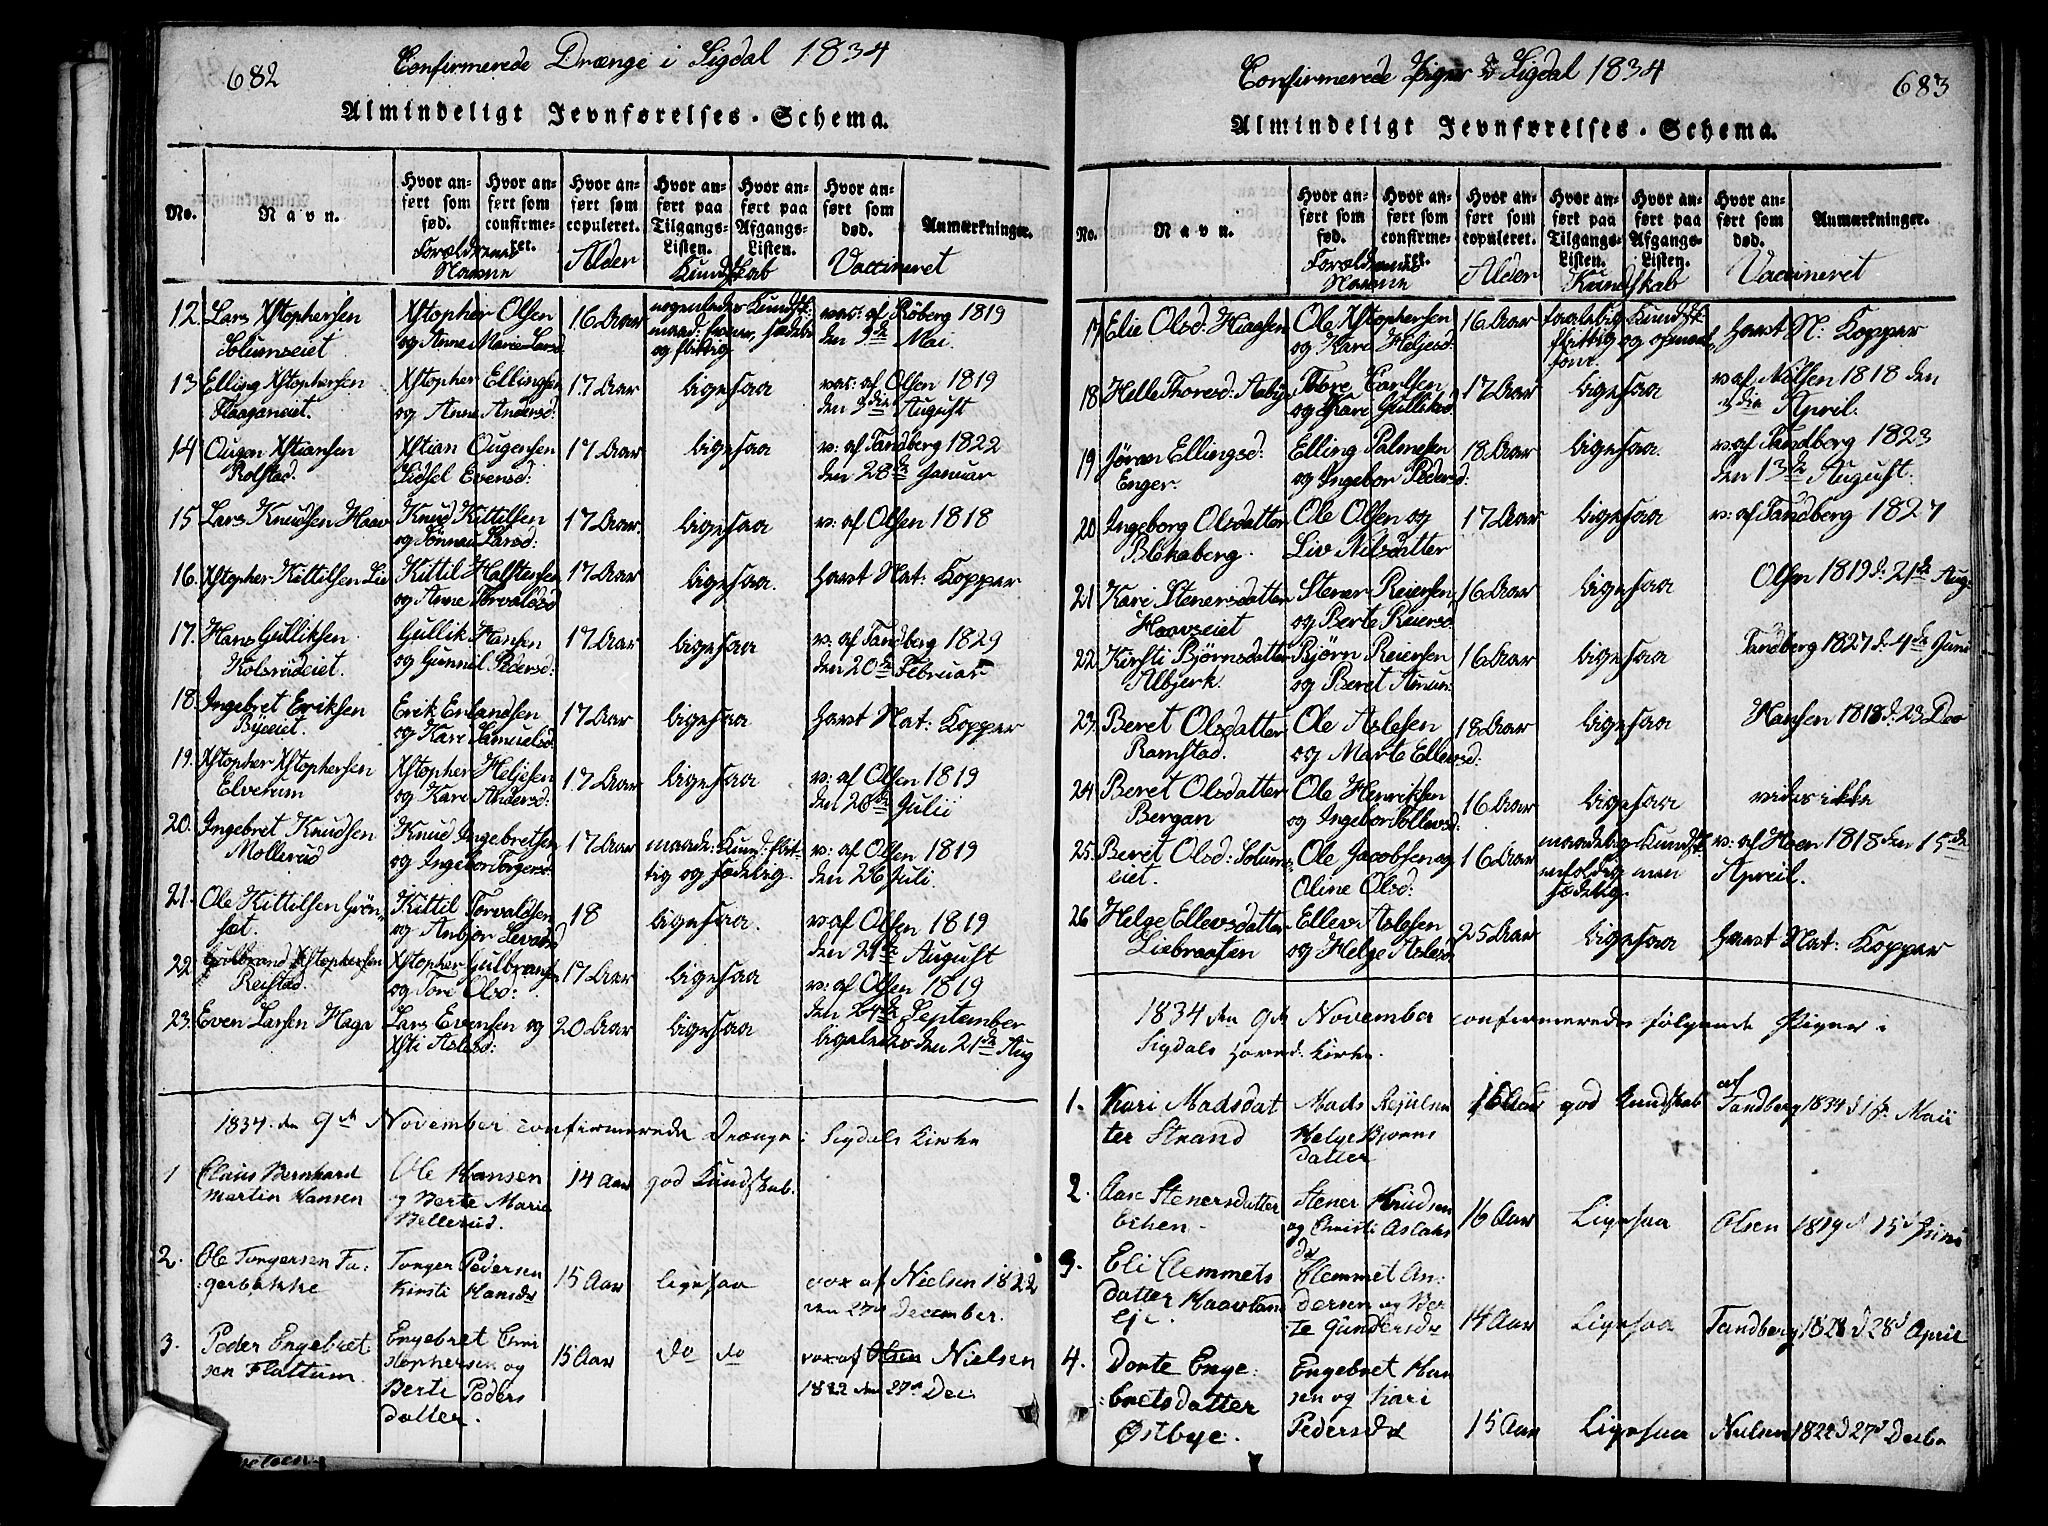 682
Confirmerede Drænge i Sigdal 1834
Almindeligt Jevnførelses-Schema.
No.
Navn.
Hvor anført som fød.
Hvor anført som confirmeret.
Hvor anført som copuleret.
Hvor anført paa Tilgangs-Listen.
Hvor anført paa Afgangs-Listen.
Hvor anført som død.
Anmærkninger.
Forældrenes Navne
Alder
Kundskab
Vaccineret
12. Lars Xstophersen Solumseiet. Xstopher Olsen og Anne Marie Larsd 16 Aar nogenledes Kundsk: vac: af Röberg 1819 den 9de Mai.
13 Elling Xstophersen Xstopher Ellingsen og Anne Andersd: 17 Aar ligesaa vac: af Olsen 1819 den 3die August
14 Ougen Xstiansen Rolstad. Xstian Ougensen Sidsel Evensd: 17 Aar ligesaa v: af Tandberg 1822 den 28de Januar
15 Lars Knudsen Haav Knud Kittilsen og Tönnau Larsd: 17 Aar ligesaa v: af Olsen 1818
16. Xstopher Kittilsen Lie Kittil Halstensen og Anne Torvaldsd 17 Aar ligesaa. havt Nat: Kopper
17. Hans Gulliksen Kolsrudeiet. Gullik Hansen og Gunnil Pedersd: 17 Aar ligesaa v: af Tandberg 1829 den 20de Februar
18. Ingebret Eriksen Byeeiet. Erik Erlandsen og Kari Samuelsd. 17 Aar ligesaa havt Nat: Kopper
19. Xstopher Xstophersen Elverum Xstopher Heljesen og Kari Andersd: 17 Aar ligesaa v: af Olsen 1819 den 20de Julii
20. Ingebret Knudsen Mollerud Knud Ingebretsen og Ingebor Torgersd: 17 Aar maade: Kund: flittig og sædelig. v: af Olsen 1819 den 26 Juli.
21. Ole Kittilsen Grönsæt. Kittil Torvaldsen og Anbjor 18 ligesaa. v af Olsen 1819 den 21de August
22. Gulbrand Xstophersen Reistad. Xstopher Gulbransen og Tore Olsd: 17 Aar ligesaa v: af Olsen 1819 den 24de September
23. Even Larsen Haga Lars Evensen og Xsti Aslesd: 20 Aar ligesaa ligeledes den 21de Aug
1834. den 9de November confirmerede Drænge i Sigdals Kirke
1 Claus Bernhard Martin Hansen Ole Hansen og Berte Marie Bellerud. 14 Aar god Kundskab.
2. Ole Torgersen Fagerbakke Torger Pedersen Kirsti Hansdr 15 Aar ligesaa vax af Nielsen 1822 den 27de December.
3. Peder Engebretsen Flattum. Engebret Christophersen og Berte Pedersdatter. 15 Aar do do vax af Olsen Nielsen 1822 den 27de Dec:
683
Confirmerede Piger i Sigdal 1834
Almindeligt Jevnførelses-Schema.
No.
Navn.
Hvor anført som fød.
Hvor anført som confirmeret.
Hvor anført som copuleret.
Hvor anført paa Tilgangs-Listen.
Hvor anført paa Afgangs-Listen.
Hvor anført som død.
Anmærkninger.
Forældrenes Navne
Alder
Kundskab
Vaccineret
17 Elie Olsd: Hiaasen Ole Xstophersen og Kari Heljesd: 16 Aar taalelig Kundsk flittig og havt N: Kopper
18 Helle Thoresd: Aasby Tore Carlsen og Kari Gulliksd: 17 Aar ligesaa v af Nilsen 1818 den 3die April.
19 Jöran Ellingsd: Enger. Elling Palmesen og Ingebor Pedersd: 18 Aar ligesaa. v af Tandberg 1823 den 13de August.
20 Ingeborg Olsdatter Blokaberg. Ole Olsen og Liv Nilsdatter 17 Aar ligesaa v: af Tandberg 1827
21 Kari Stenersdatter Haavseiet Stener Reiersen og Berte Reiersd: 16 Aar ligesaa Olsen 1819 d: 21de Aug:
22. Kirsti Björnsdatter Albjerk. Björn Reiersen og Beret Amun: 16 Aar ligesaa Tandberg 1827 d: 4de Juni
23. Beret Olsdatter Ramstad. Ole Aslesen og Marte Ellevsd: 18 Aar ligesaa Hansen 1818 d: 23 Dec
24 Beret Olsdatter Bergan Ole Henriksen og Ingebor Tollevsd: 16 Aar ligesaa vides ikke
25. Beret Olsd: Solumseiet. Ole Jacobsen og Oline Olsd: 16 Aar maadelig Kundsk: men sædelig v: af Hoen 1818 den 15de April.
26 Helge Ellevsdatter Liebraaten Ellev Aslesen og Helge Aslesd 25 Aar ligesaa havt Nat: Kopper
1834 den 9de November confirmeredes følgende Piger i Sigdals Hoved Kirke.
1. Kari Madsdatter Strand Mads Helge Bjørnsdatter 16 Aar god Kundskab af Tandberg 1834 d 1ste Maii
2. Aase Stenersdatter Stener Knudsen og Christi Aslaksdr 16 Aar Ligesaa Olsen 1819 d 15d Juni
3. Eli Clemmetsdatter Haavlan Eje. Clemmet Andersen og Berte Gundersdr 14 Aar Ligesaa Tandberg 1828 d 28d April
4. Dorte Engebretsdatter Østbye. Engebret Hansen og Kari Pedersdr 15 Aar Ligesaa Nielsen 1822 d 27d Decbr